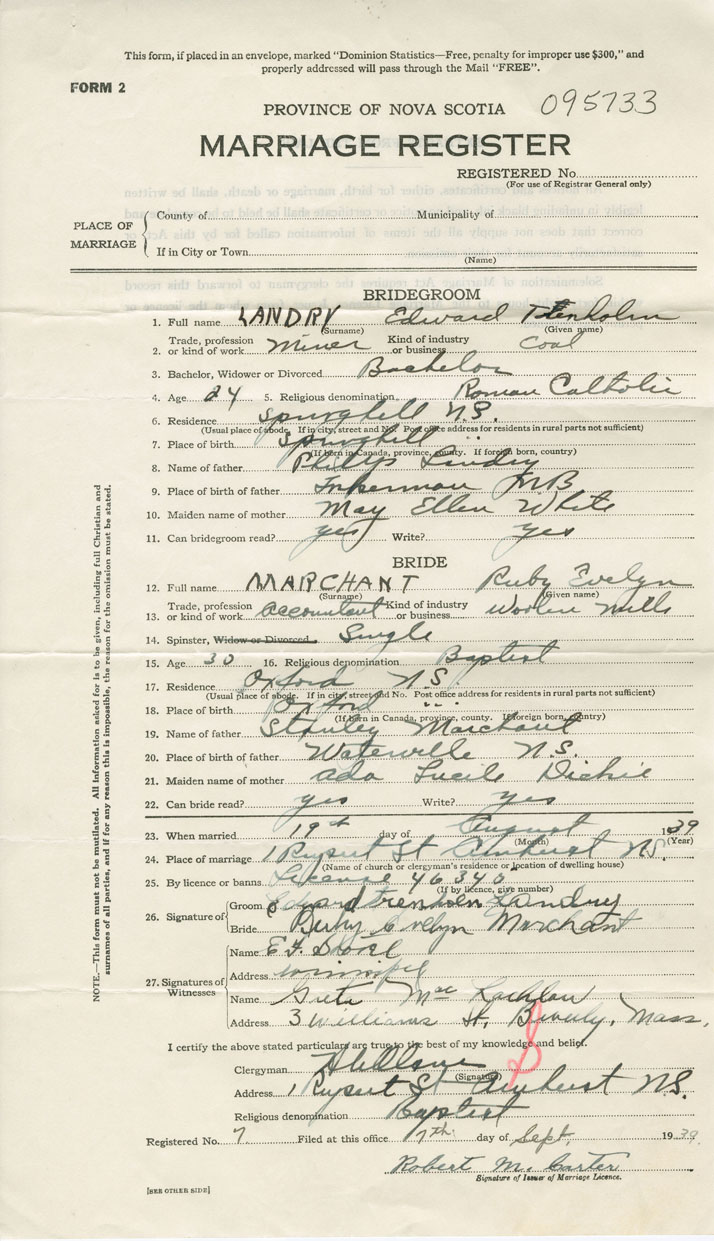 This form, if placed in an envelope, marked "Dominion Statistics—Free, penalty for improper use $300," and
properly addressed will pass through the Mail "FREE".
FORM 2
PROVINCE OF NOVA SCOTIA 095733
MARRIAGE REGISTER
REGISTERED No.
(For use of Registrar General only)
PLACE OF MARRIAGE
County of Municipality of
If in City or Town
(Name)
BRIDEGROOM
1. Full name LANDRY Edward Trenholm
(Surname) (Given name)
2. Trade, profession or kind of work Miner Kind of industry or business Coal
3. Bachelor, Widower or Divorced Bachelor
4. Age 24 5. Religious denomination Roman Catholic
6. Residence Springhill N.S.
(Usual place of abode. If in city, street and No. Post office address for residents in rural parts not sufficient)
7. Place of birth Springhill " "
(If born in Canada, province, county. If foreign born, country)
8. Name of father Philip Landry
9. Place of birth of father Inkerman N B
10. Maiden name of mother May Ellen White
11. Can bridegroom read? yes Write? yes
BRIDE
12. Full name MARCHANT Ruby Evelyn
(Surname) (Given name)
13. Trade, profession or kind of work accountant Kind of industry or business Woolen Mills
14. Spinster, Widow or Divorced Single
15. Age 30 16. Religious denomination Baptist
17. Residence Oxford N.S.
(Usual place of abode. If in city, street and No. Post office address for residents in rural parts not sufficient)
18. Place of birth Oxford " "
(If born in Canada, province, county. If foreign born, country)
19. Name of father Stanley Marchant
20. Place of birth of father Waterville N.S.
21. Maiden name of mother Ada Lucile Dickie
22. Can bride read? yes Write? yes
23. When married 19th day of August 1939
(Month) (Year)
24. Place of marriage 1 Rupert St Amherst N.S.
(Name of church or clergyman's residence or location of dwelling house)
25. By licence or banns License 46340
(If by licence, give number)
26. Signature of
Groom Edward Trenholm Landry
Bride Ruby Evelyn Marchant
27. Signatures of Witnesses
Name E. F.
Address Winnipeg
Name Greta Mac Lachlan
Address 3 Williams St, Beverly, Mass,
I certify the above stated particulars are true to the best of my knowledge and belief.
Clergyman
(Signature)
Address 1 Rupert St Amherst N.S.
Religious denomination Baptist
Registered No. 7 Filed at this office 17th day of Sept. 1939.
Robert M. Carter
Signature of Issuer of Marriage Licence.
[SEE OTHER SIDE]
NOTE.—This form must not be mutilated. All Information asked for is to be given, including full Christian and
surnames of all parties, and if for any reason this is impossible, the reason for the omission must be stated.